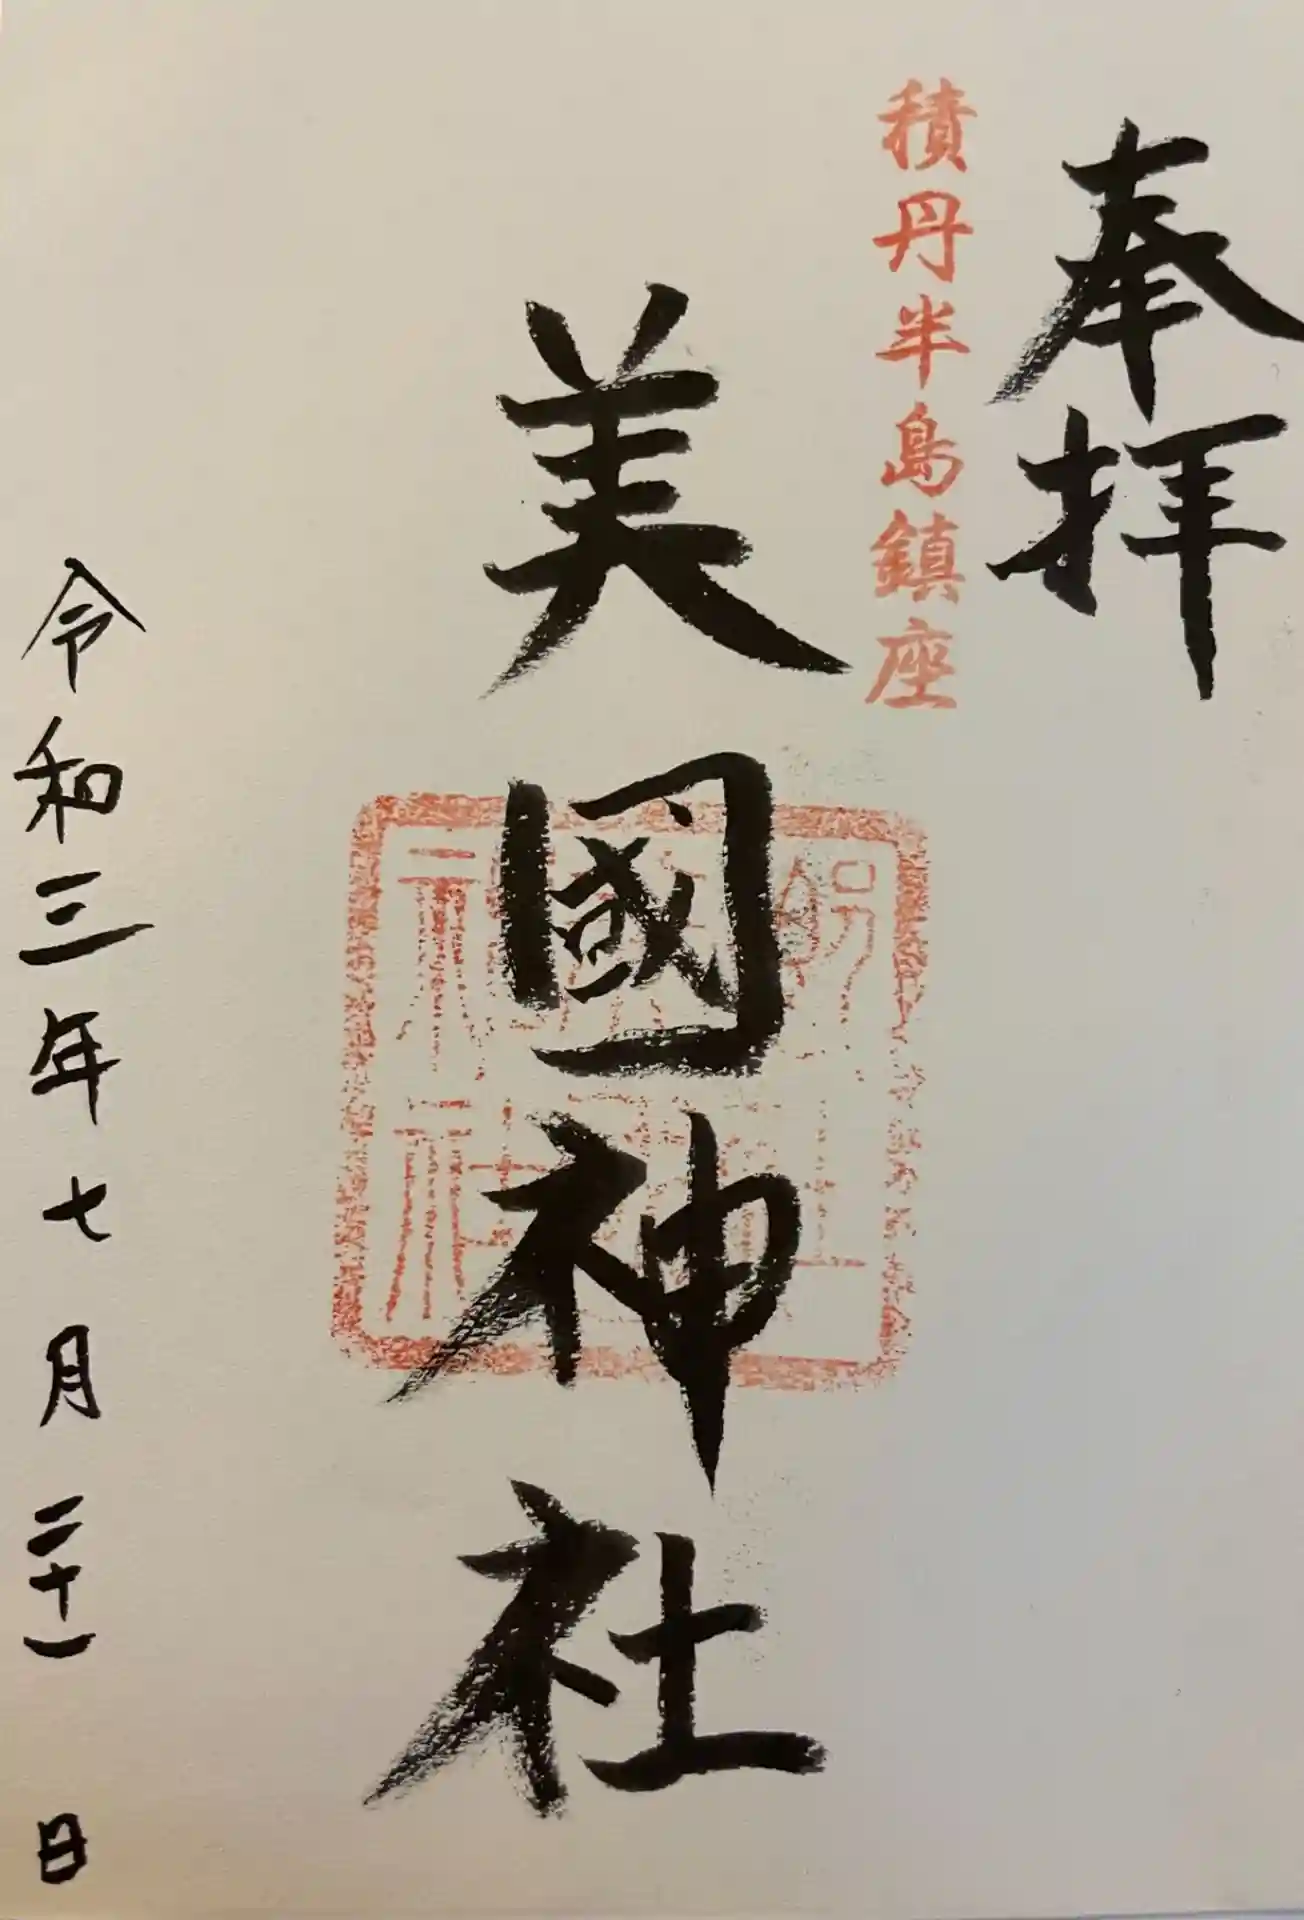 奉拝
積丹半島鎮座
美國神社
令和三年七月二十一日